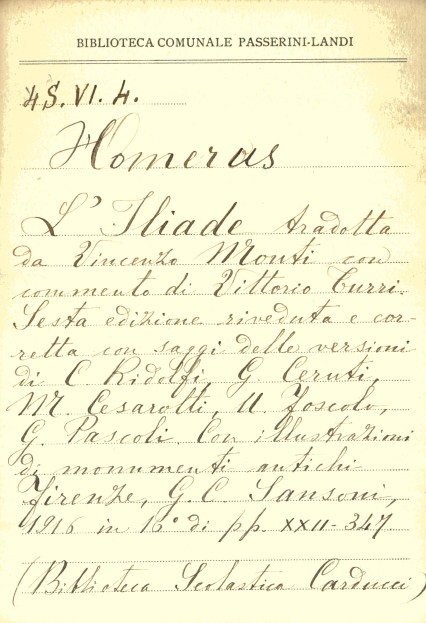 BIBLIOTECA COMUNALE PASSERINI-LANDI
4S. VI. 4.
Homerus
L' Iliade tradotta
da Vincenzo Monti con
commento di Vittorio Turri.
Sesta edizione riveduta e cor-
retta con saggi delle versioni
di C. Ridolfi, G. Ceruti,
M. Cesarotti, U. Foscolo,
G. Pascoli. Con illustrazioni
di monumenti antichi
Firenze, G. C. Sansoni,
1916 in 16° di pp. XXII-347
(Biblioteca Scolastica Carducci)